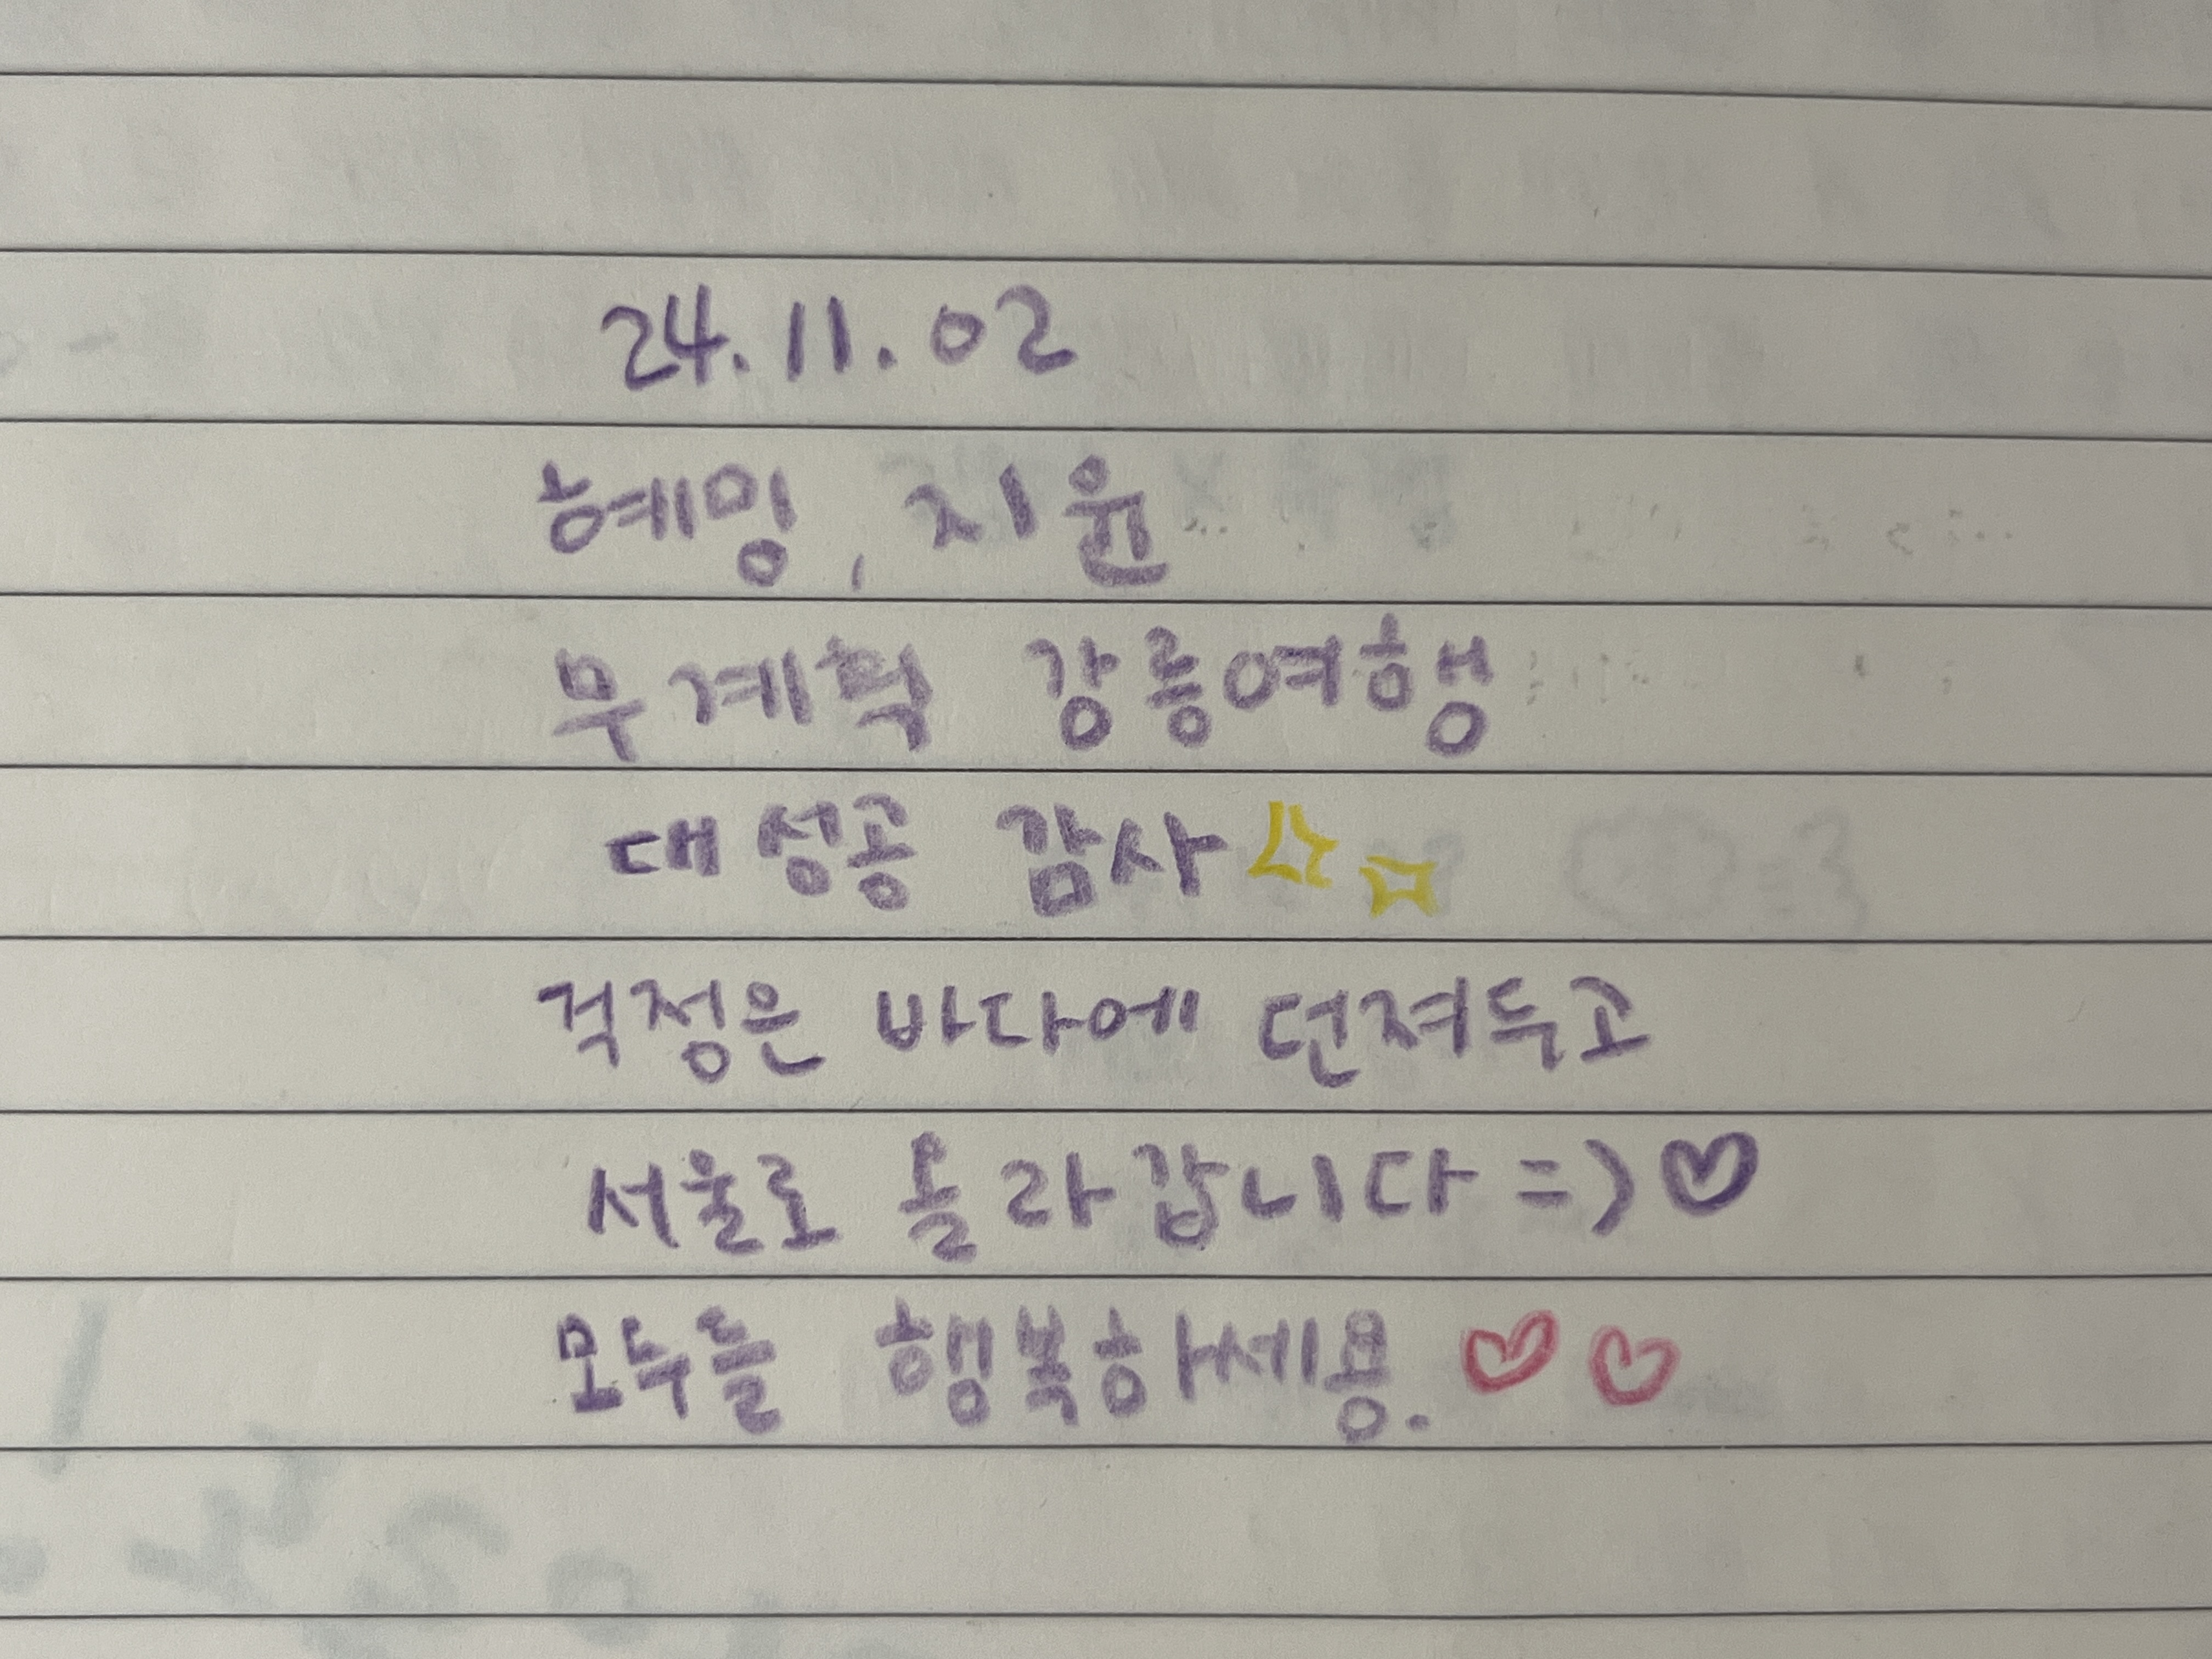 24.11.02
혜밍, 지윤
무계획 강릉여행
대성공 감사
걱정은 바다에 던져두고
서울로 올라갑니다 =) ♡
모두들 행복하세용. ♡ ♡